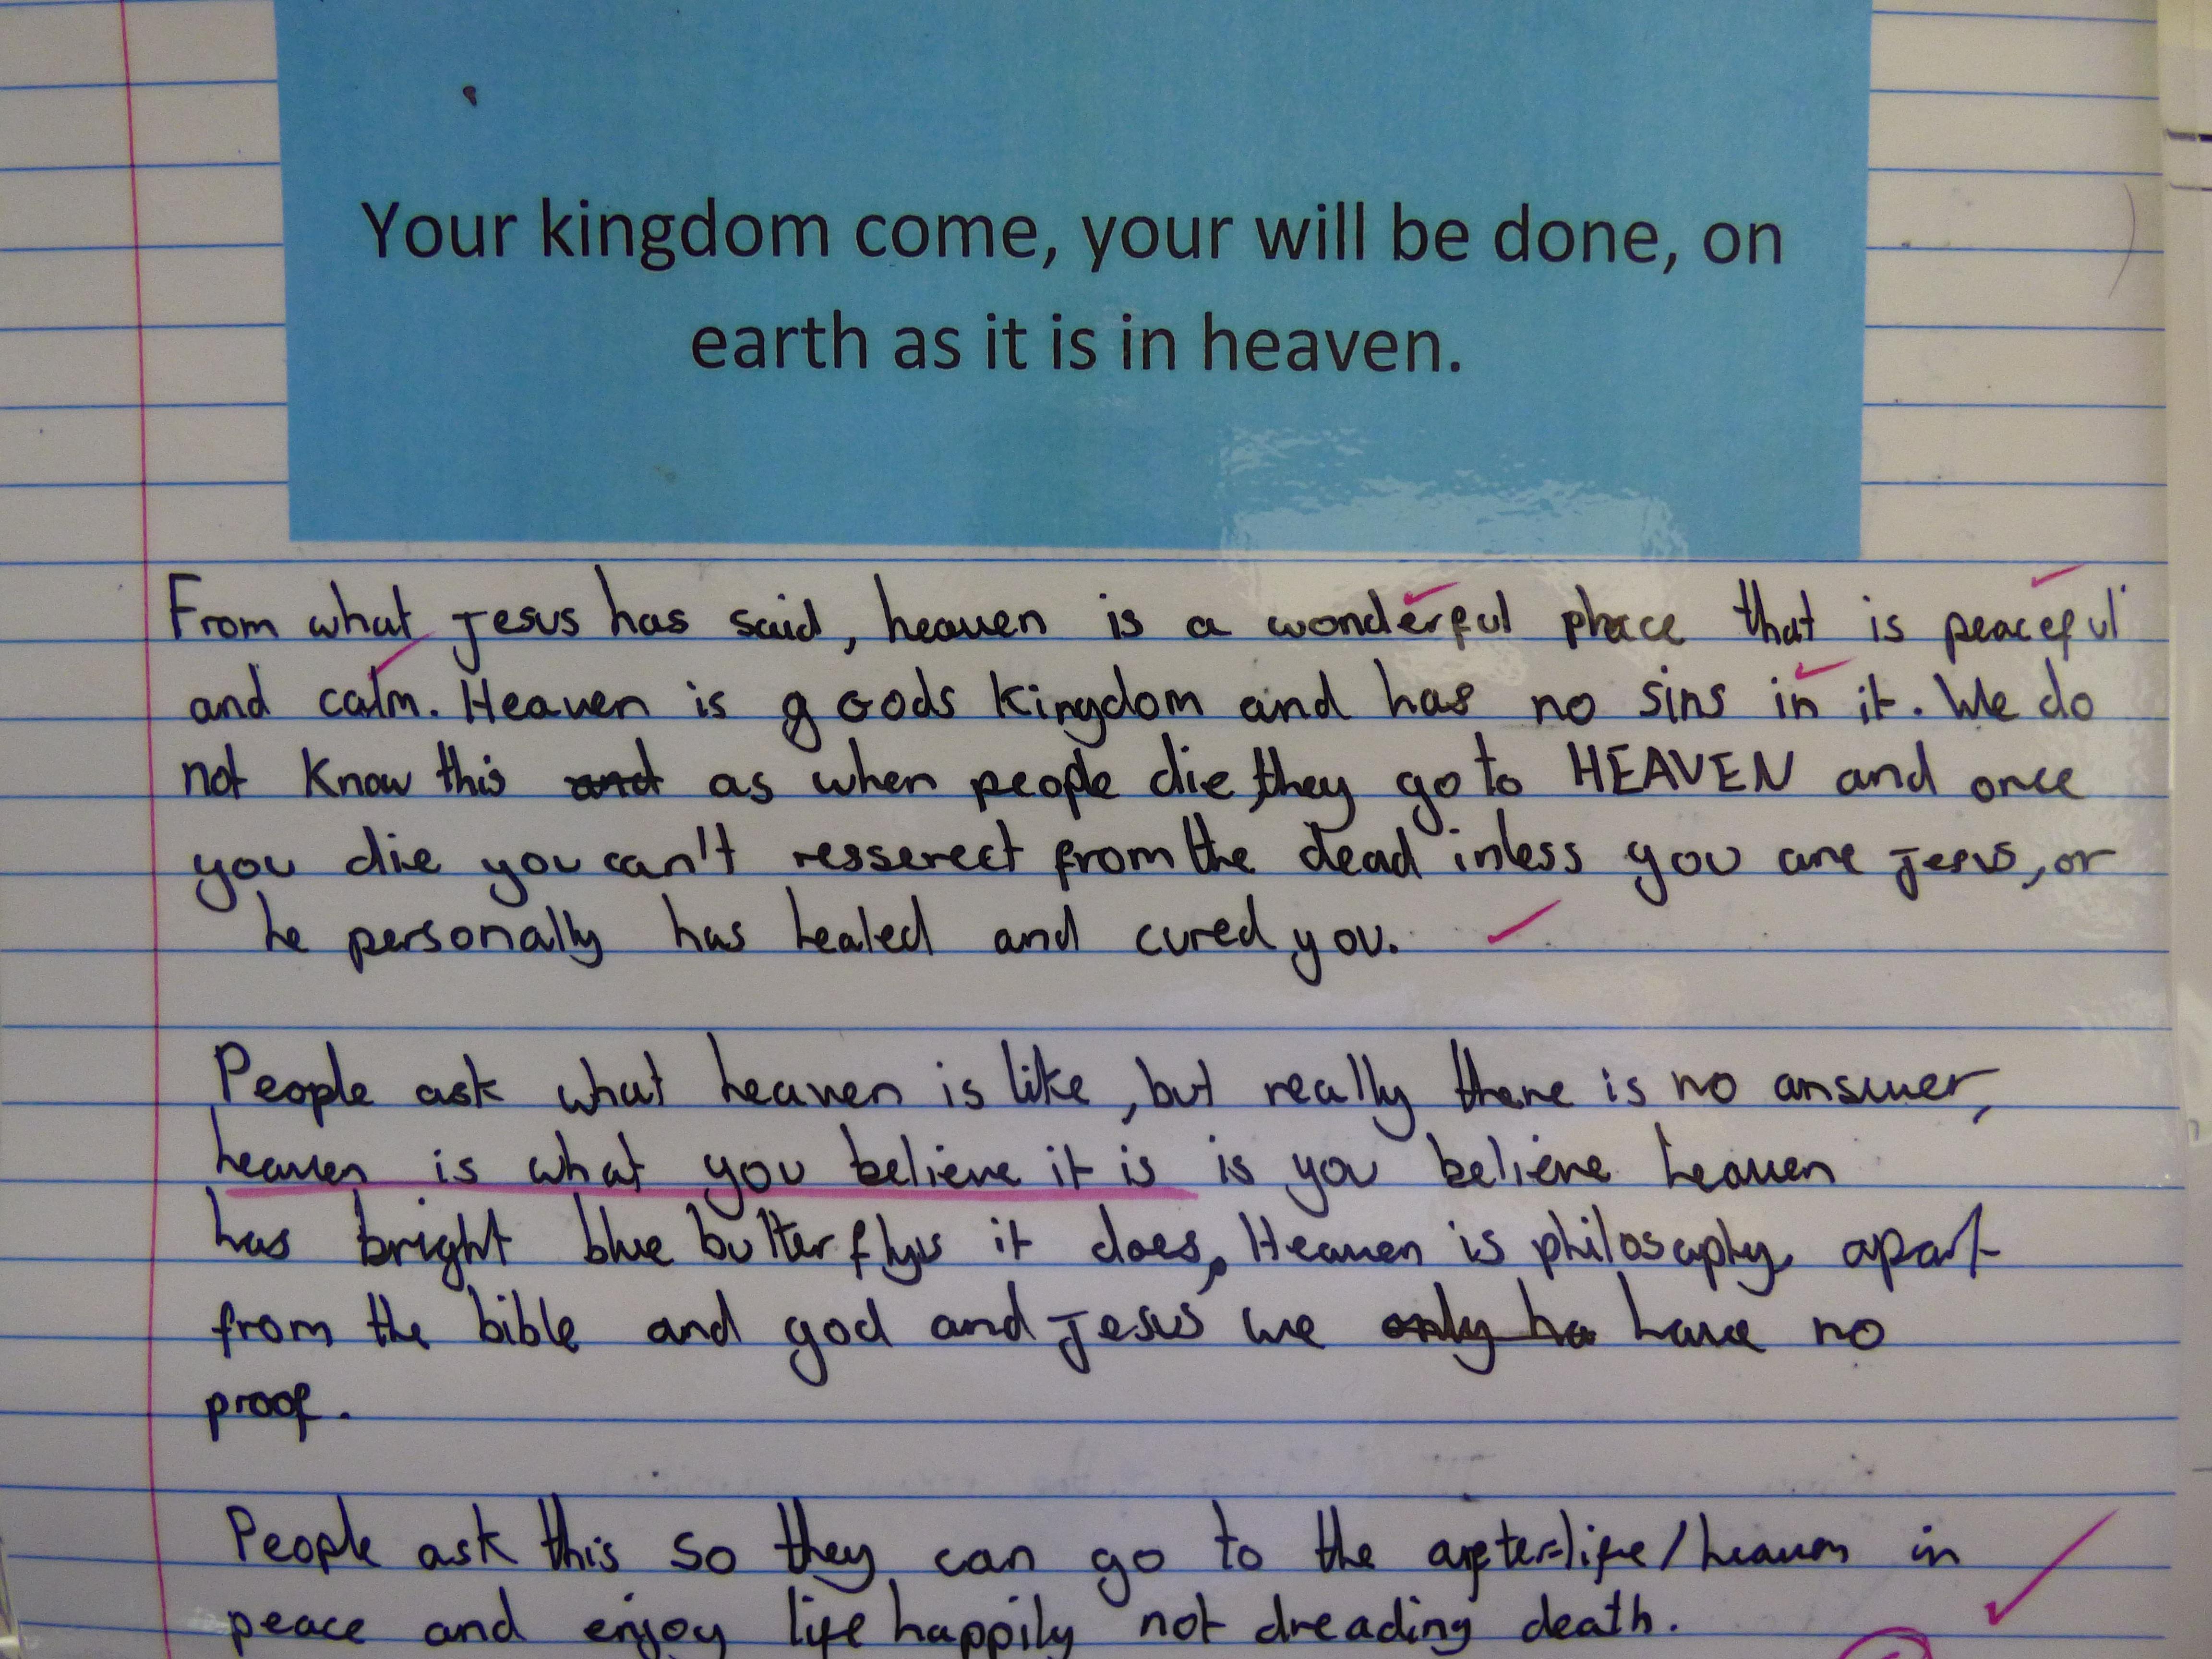 Your kingdom come, your will be done, on
earth as it is in heaven.
From what Jesus has said, heaven is a wonderful place that is peaceful
and calm. Heaven is g Gods Kingdom and has no sins in it. We do
not know this and as when people die, they go to HEAVEN and once
you die you can't resserect from the dead inless you are Jesus, or
he personally has healed and cured you.
People ask what heaven is like, but really there is no answer,
heaven is what you believe it is is you believe heaven
has bright blue butterflys it does, Heaven is philosophy, apart
from the bible and god and Jesus we only ha have no
proof.
People ask this so they can go to the after-life/heaven in
peace and enjoy life happily not dreading death.